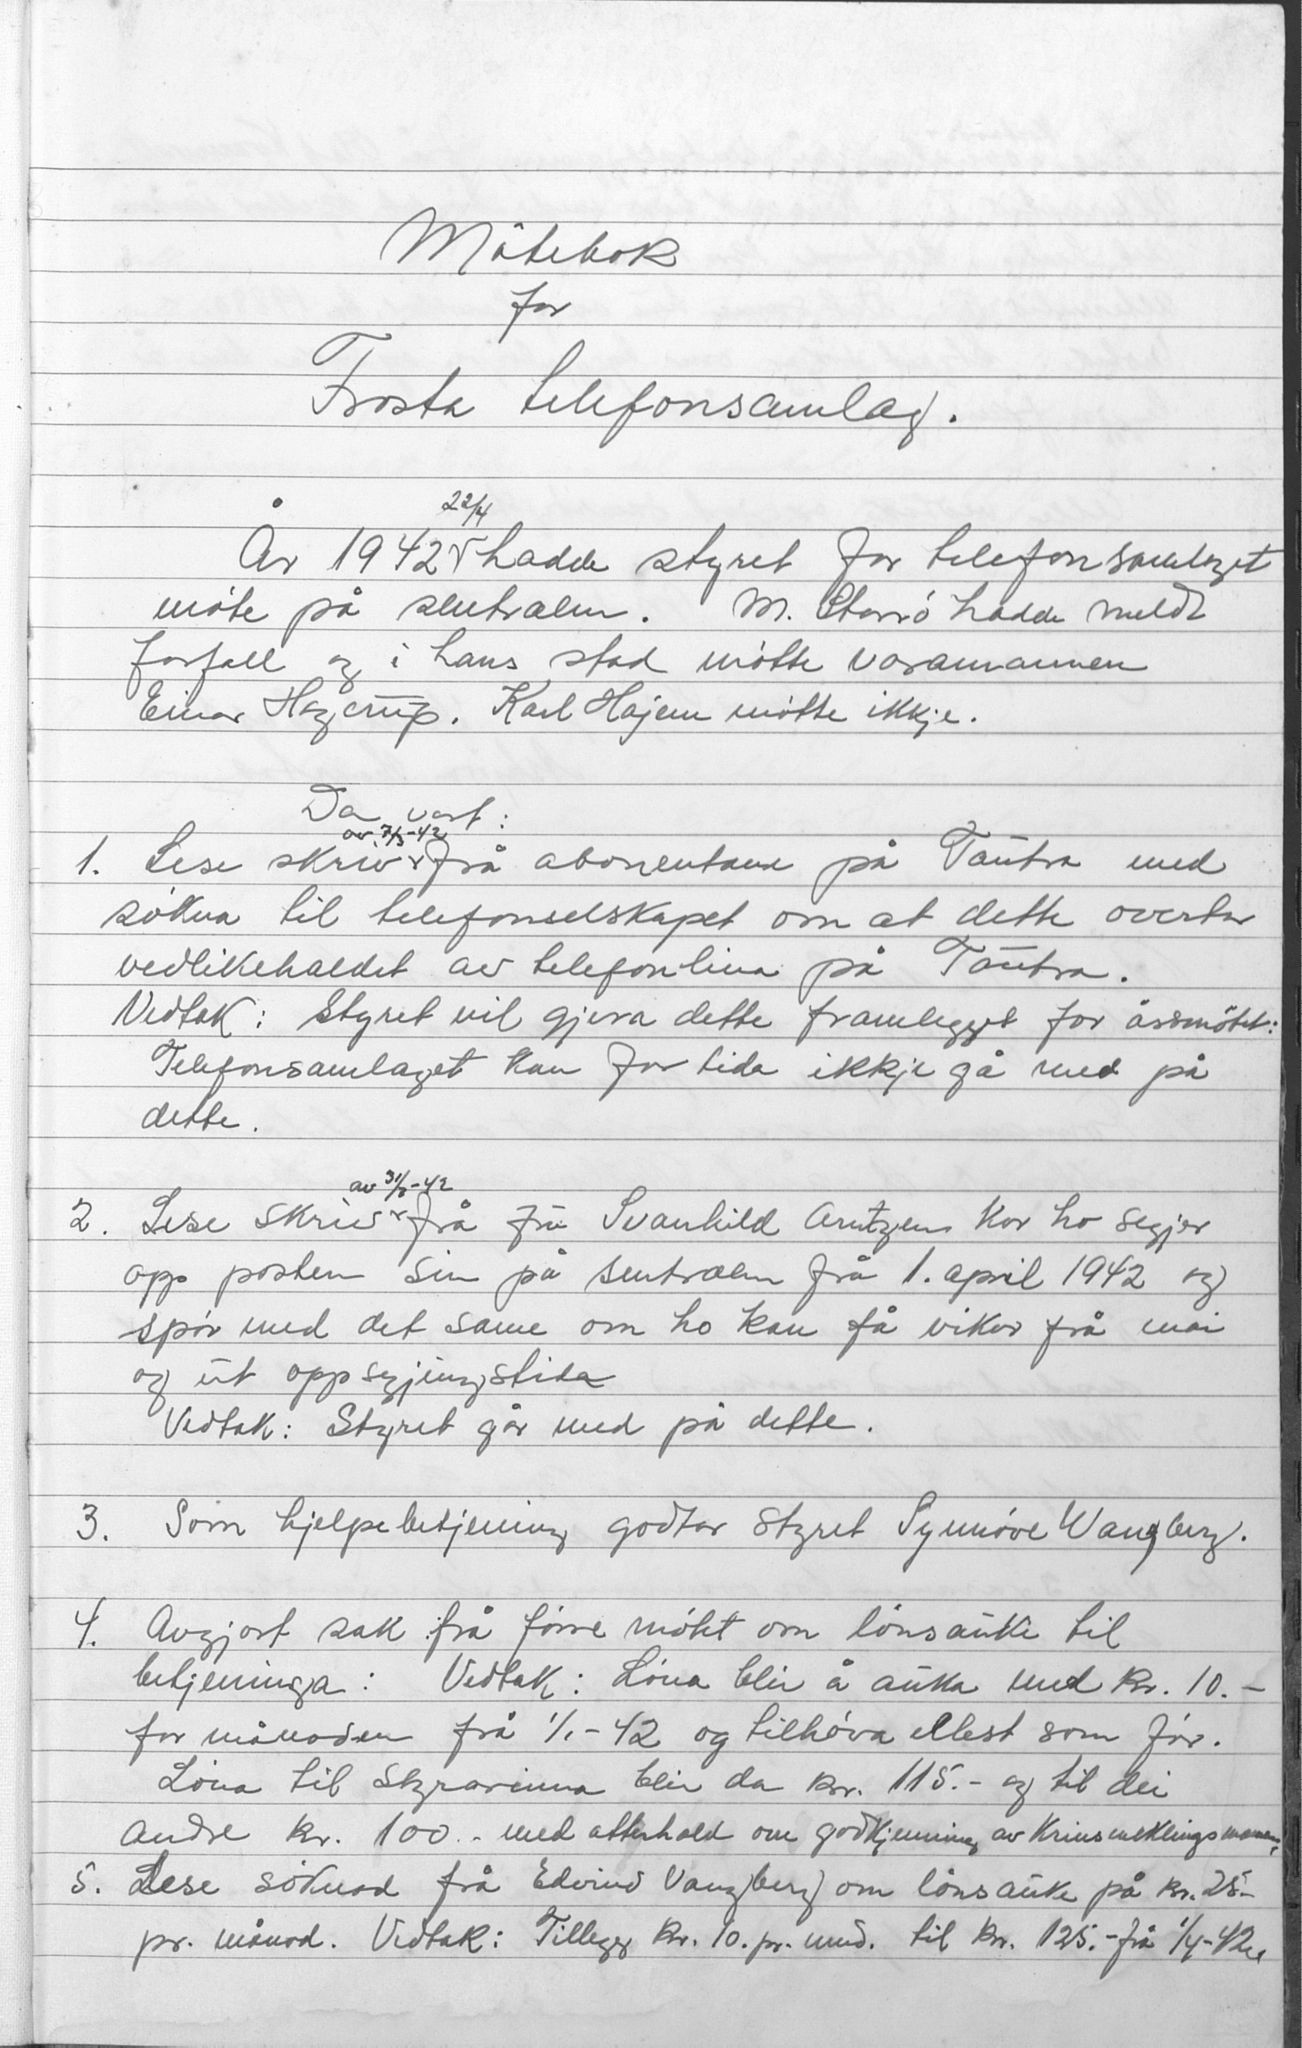 Møtebok
for
Frosta telefonsamlag.
År 1942 22/4 hadde styret for telefonsamlaget
møte på sentralen. M. Storrø hadde meldt
forfall og i hans stad møtte varamannen
Einar Hagerup. Karl Hojem møtte ikkje.
Da vart:
1. Lese skriv av 7/3-42 frå abonentane på Tautra med
søkna til telefonselskapet om at dette overtar
vedlikehaldet av telefonlina på Tautra.
Vedtak: Styret vil gjera dette framlegget for årsmøtet:
Telefonsamlaget kan for tida ikkje gå med på
dette.
2. Lese skriv av 31/3-42 frå fru Svanhild Arntzen kor ho segjer
opp posten sin på sentralen frå 1. april 1942 og
spør med det same om ho kan få vikar frå mai
og ut oppsegjingstida
Vedtak: Styret går med på dette.
3. Som hjelpebetjening godtar styret Synnøve Wangberg.
4. Avgjort sak frå førre møtet om lønsauke til
betjeninga: Vedtak: Løna blir å auka med kr. 10.-
for månoden frå 1/1-42 og tilhøva ellest som før.
Løna til styrarinna blir da kr. 115.- og til dei
andre kr. 100.- med atterhald om godkjenning av Krinsmeklingsmannen.
5. Lese søknad frå Edvind Vangberg om lønsauke på kr. 25.-
pr. månod. Vedtak: Tillegg kr. 10. pr. mnd. til kr. 125.- frå 1/4-42